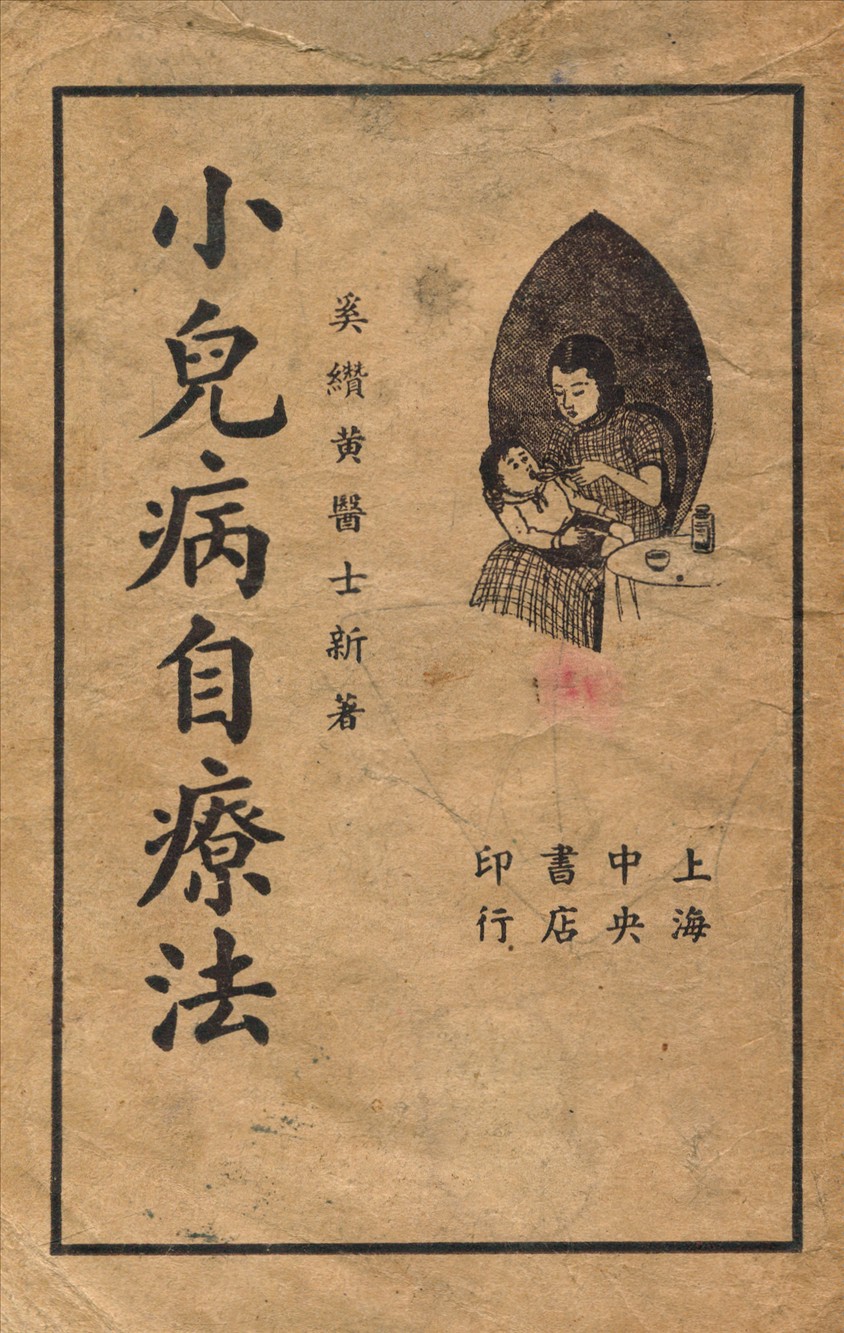 小兒病自療法
奚纘黄醫士新著
上海
中央
書店
印行